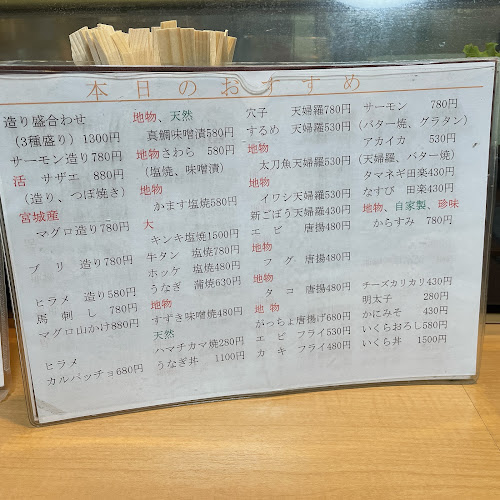 本日のおすすめ
造り盛合わせ
(3種盛り) 1300円
サーモン造り780円
活 サザエ 880円
(造り、つぼ焼き)
宮城産
マグロ造り780円
ブリ 造り780円
ヒラメ 造り580円
馬刺し 780円
マグロ山かけ880円
ヒラメ
カルパッチョ680円
地物、天然
真鯛味噌漬580円
地物さわら 580円
(塩焼、味噌漬)
地物
かます塩焼580円
大
キンキ塩焼1500円
牛タン 塩焼780円
ホッケ 塩焼480円
うなぎ 蒲焼630円
地物
すずき味噌焼480円
天然
ハマチカマ焼280円
うなぎ丼 1100円
穴子 天婦羅780円
するめ 天婦羅530円
地物
太刀魚天婦羅530円
地物
イワシ天婦羅530円
新ごぼう天婦羅430円
エビ 唐揚480円
地物
フグ 唐揚480円
地物
タコ 唐揚480円
地物
がっちょ唐揚げ680円
エビ フライ530円
カキ フライ480円
サーモン 780円
(バター焼、グラタン)
アカイカ 530円
(天婦羅、バター焼)
タマネギ田楽430円
なすび 田楽430円
地物、自家製、珍味
からすみ 780円
チーズカリカリ430円
明太子 280円
かにみそ 430円
いくらおろし580円
いくら丼 1500円